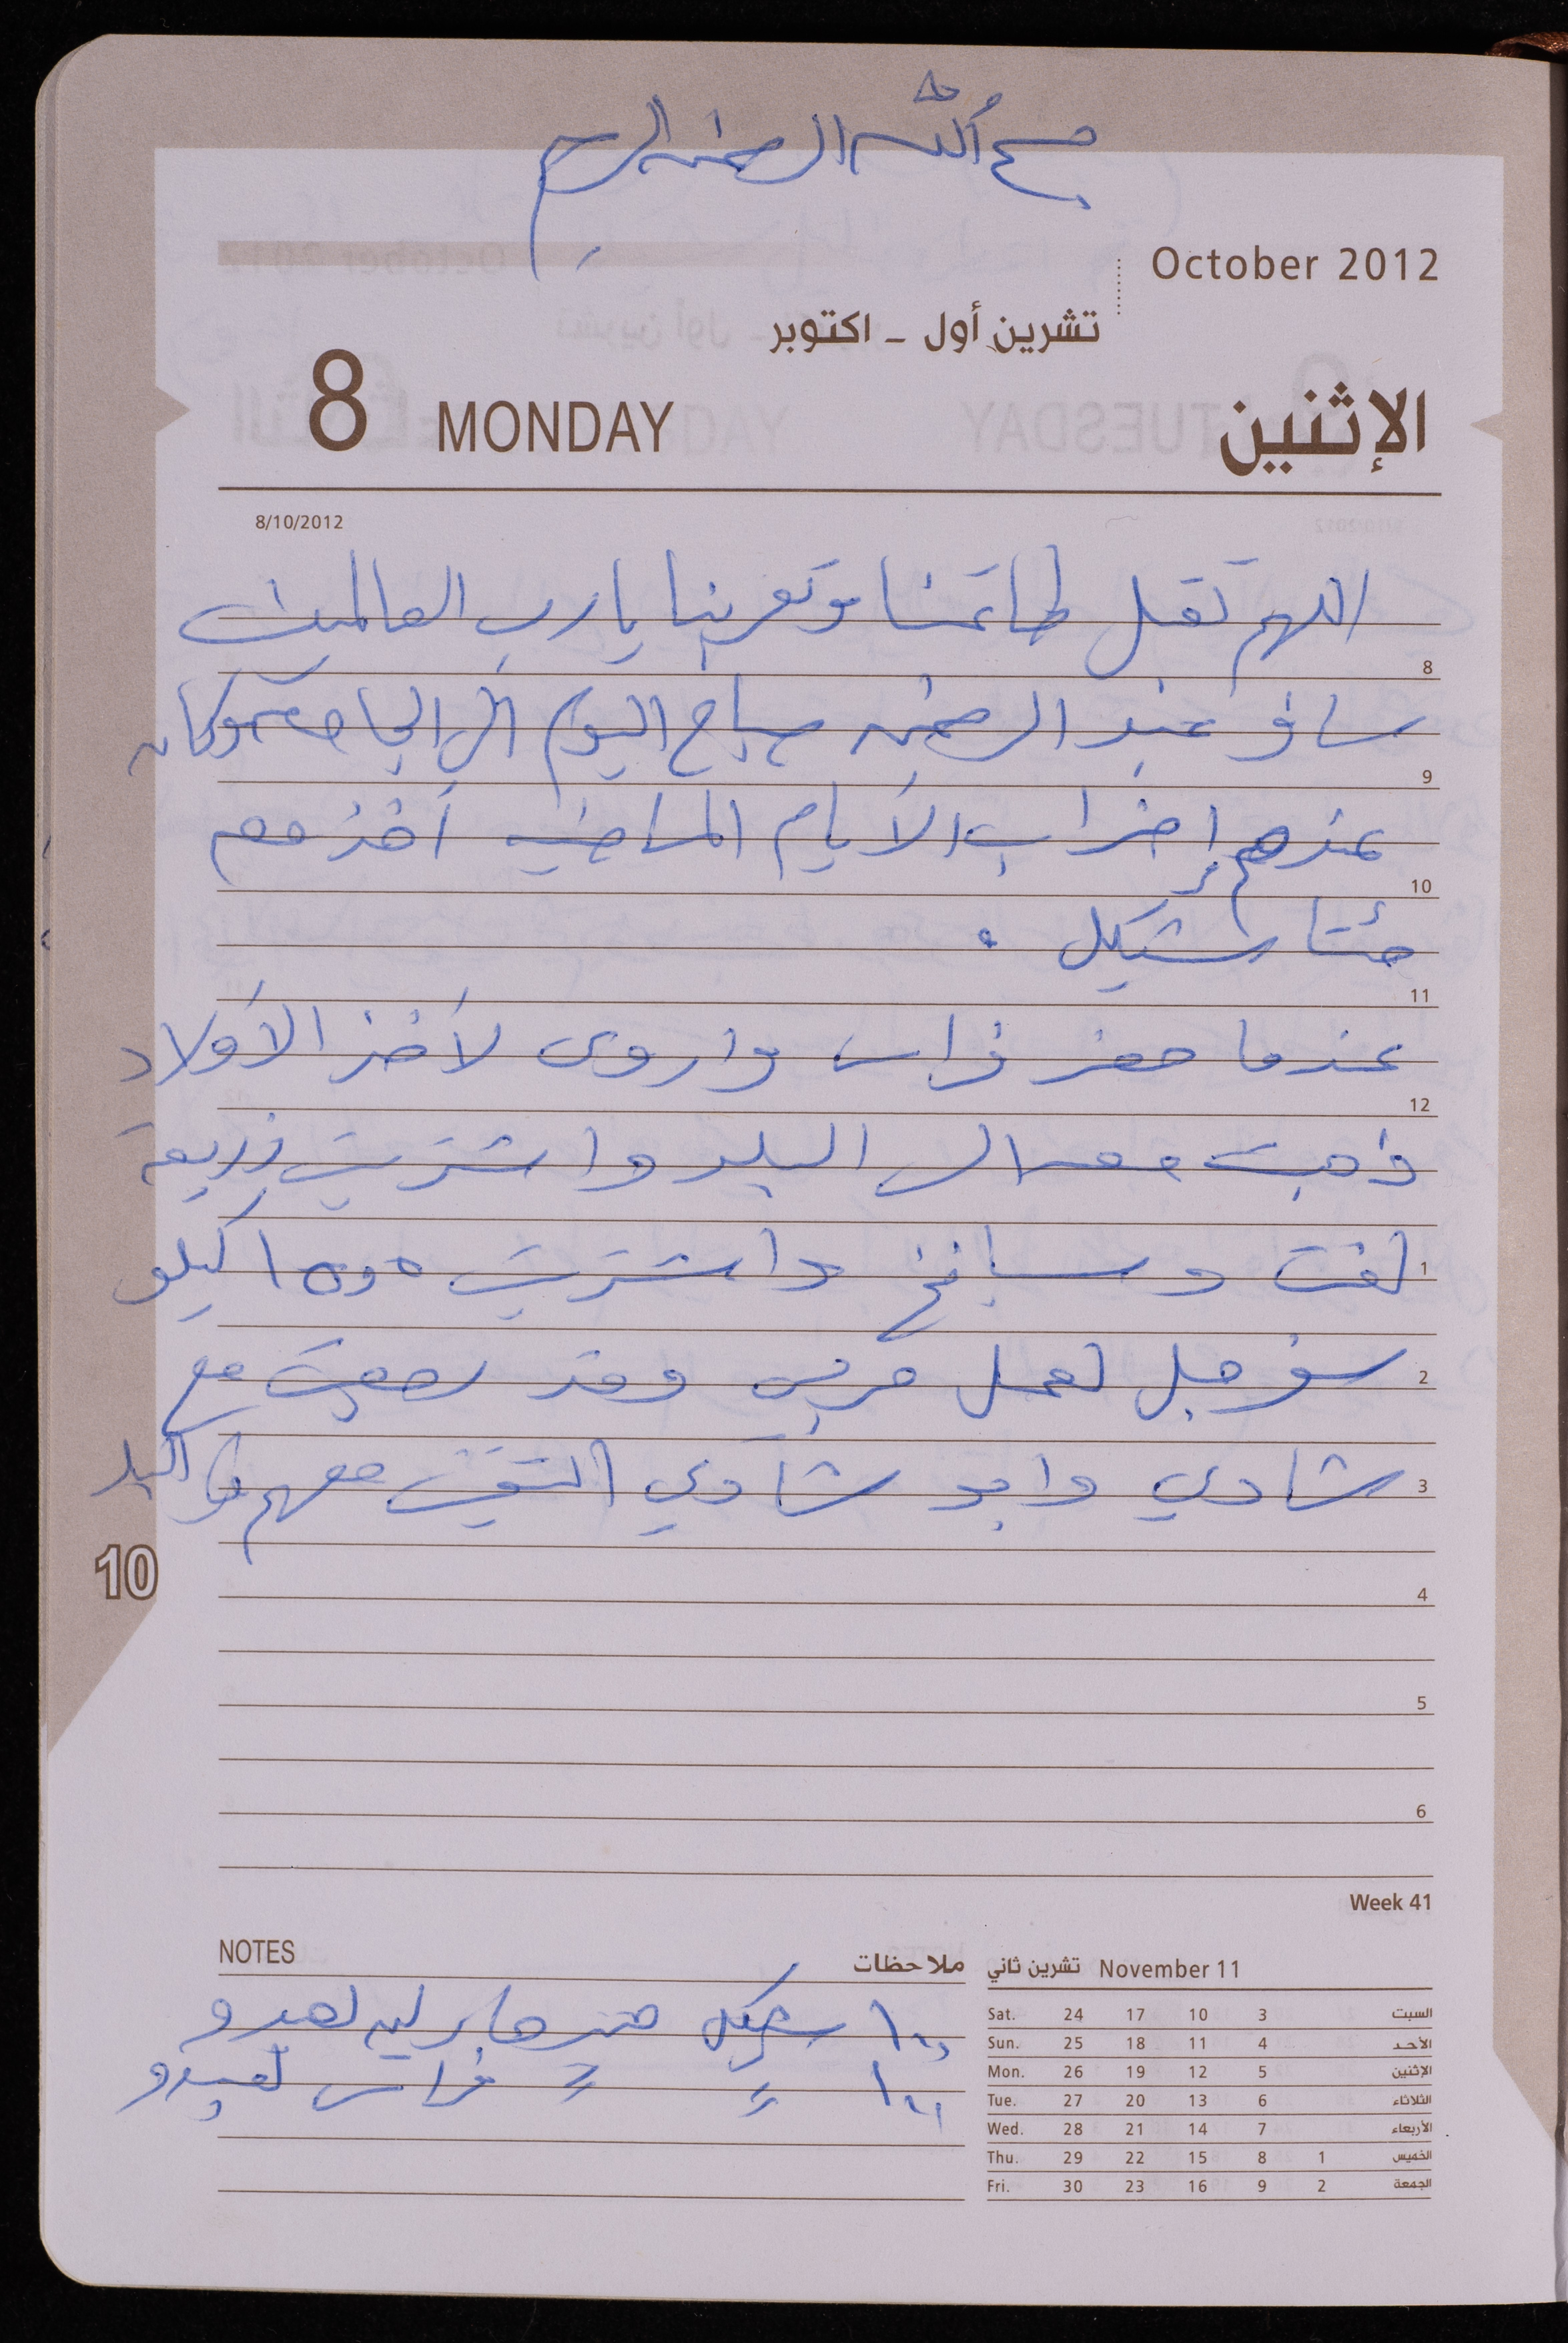 بسم الله الرحمن الرحيم
October 2012
تشرين أول - اكتوبر
8 MONDAY الإثنين
8/10/2012
اللهم تقبل طاعتنا وتعزينا يا رب العالمين
8
سافر عبد الرحمن صباح اليوم الى الجامعة وكان
9
عندهم إضراب الأيام الماضية أخذ معه
10
مئتا شيكل .
11
عندما حضر فراس واروى لأخذ الأولاد
12
ذهبت معه الى البلد واشتريت زريعة
لفت وسبانخ واشتريت 1500 كيلو
1
سفرجل لعمل مربى وقد رجعت مع
2
شادي وابو شادي التقيت معهم في البلد
3
10
4
5
6
Week 41
NOTES ملاحظات
١٠٠ شيكل من جابر لعبدو
١٠٠ = = فراس لعبدو
November 11 تشرين ثاني
Sat. 24 17 10 3 السبت
Sun. 25 18 11 4 الأحد
Mon. 26 19 12 5 الإثنين
Tue. 27 20 13 6 الثلاثاء
Wed. 28 21 14 7 الأربعاء
Thu. 29 22 15 8 1 الخميس
Fri. 30 23 16 9 2 الجمعة